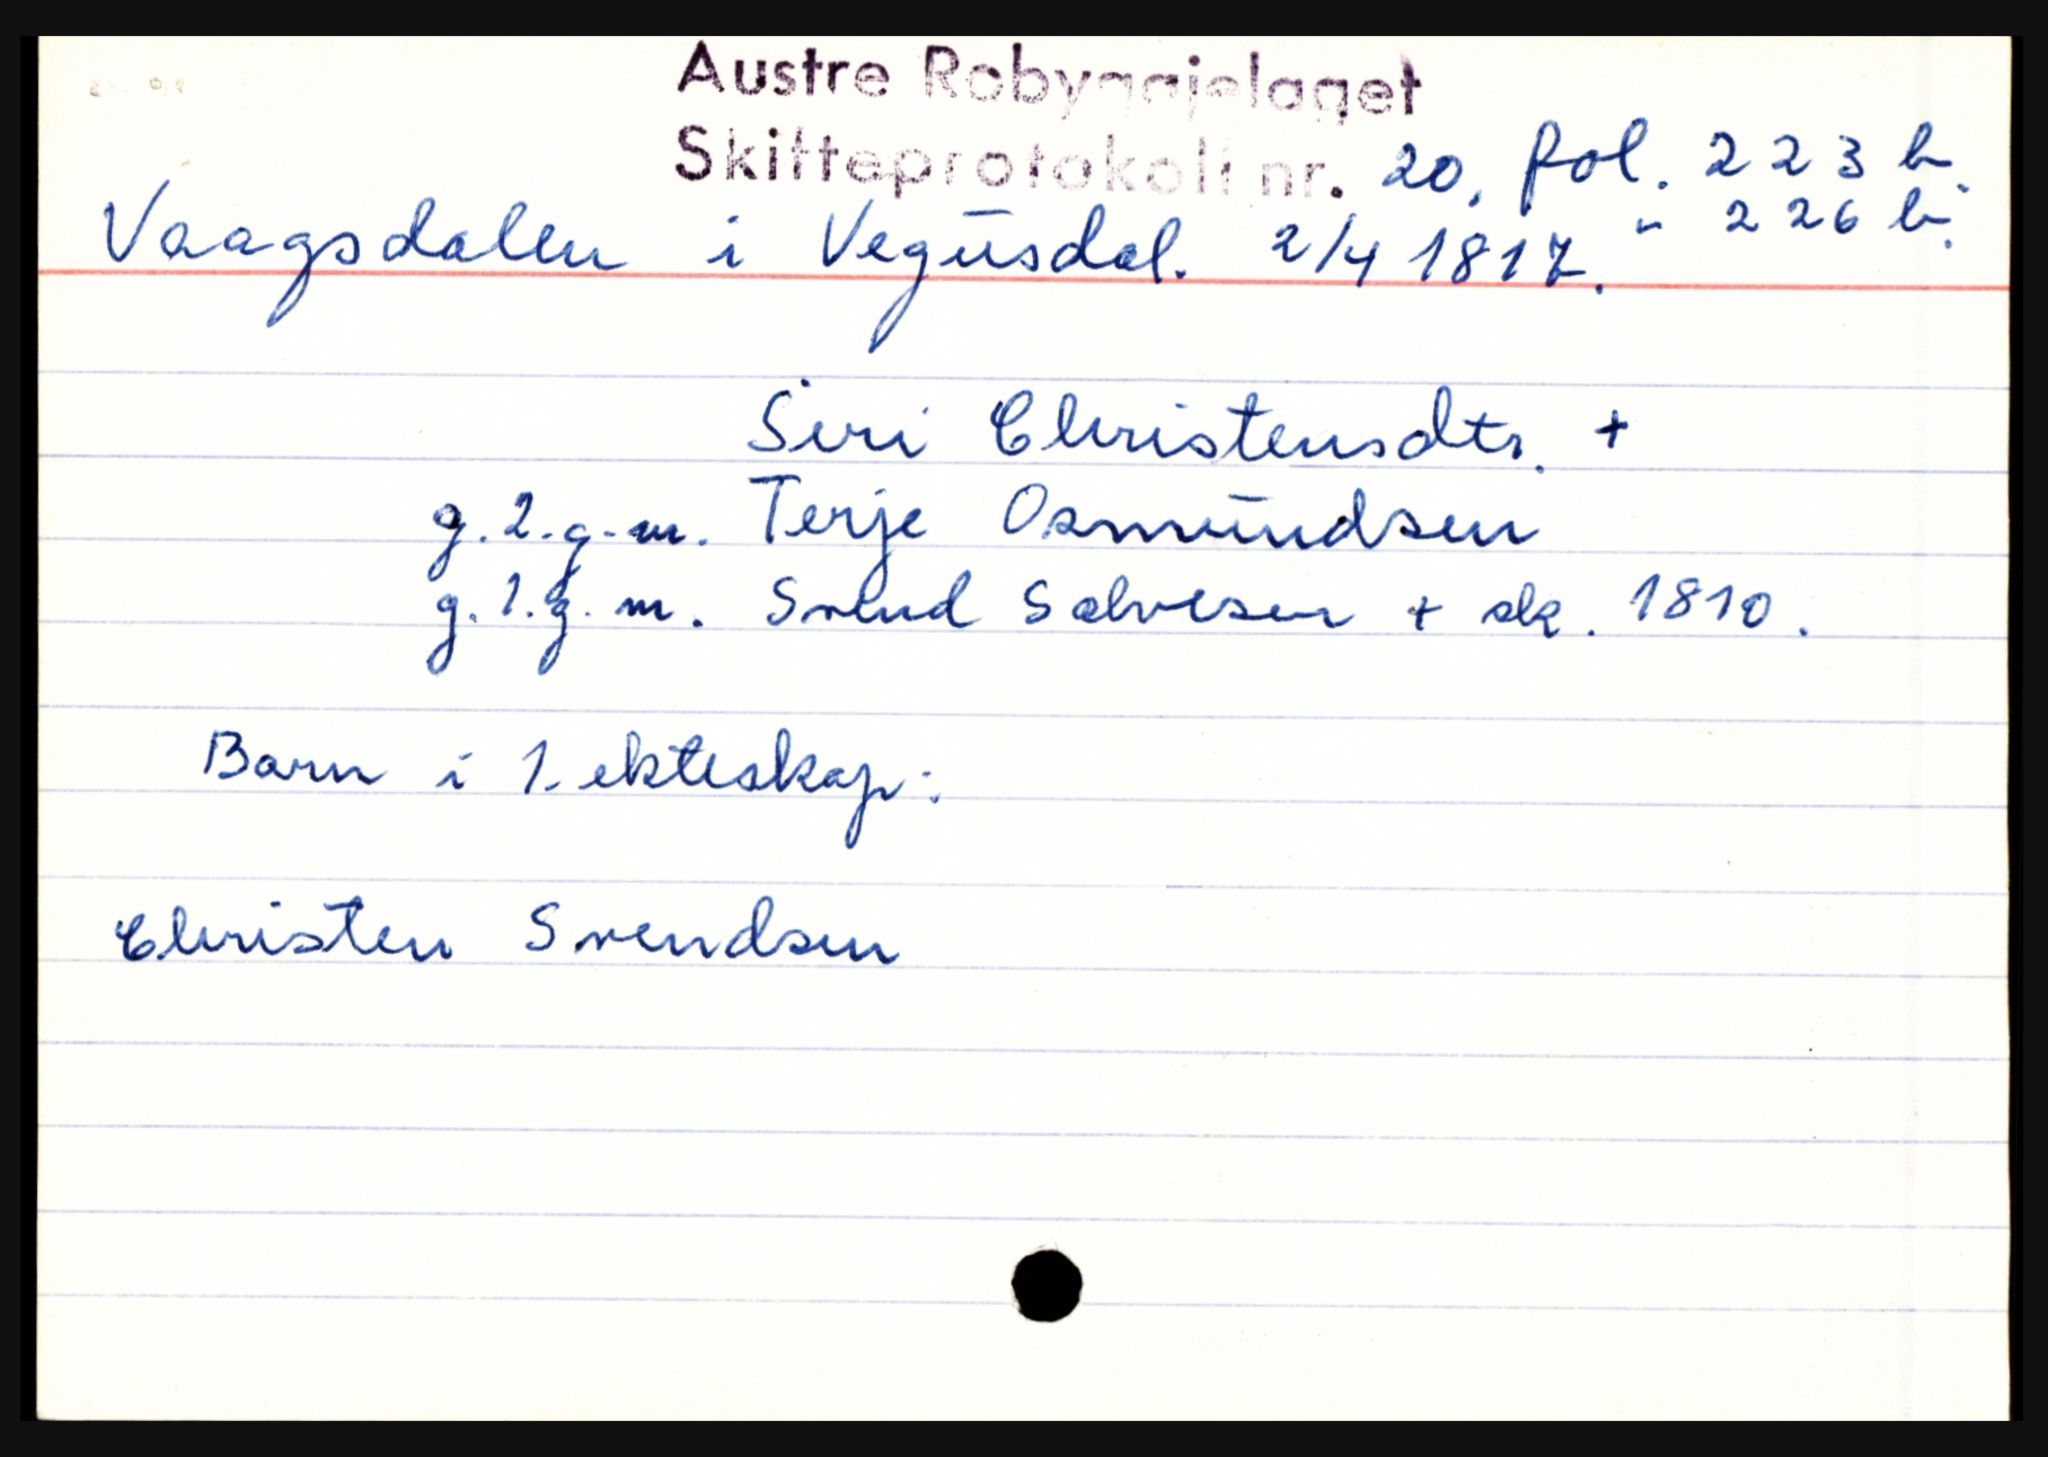 Austre Robyggjelaget
Skifteprotokoll nr. 20, fol. 223 b.
Vaagsdalen i Vegusdal. 2/4 1817. " 226 b.
Siri Christensdtr. +
g. 2. g. m. Terje Osmundsen
g. 1. g. m. Svend Salvesen + sk. 1810.
Barn i 1. ekteskap:
Christen Svendsen